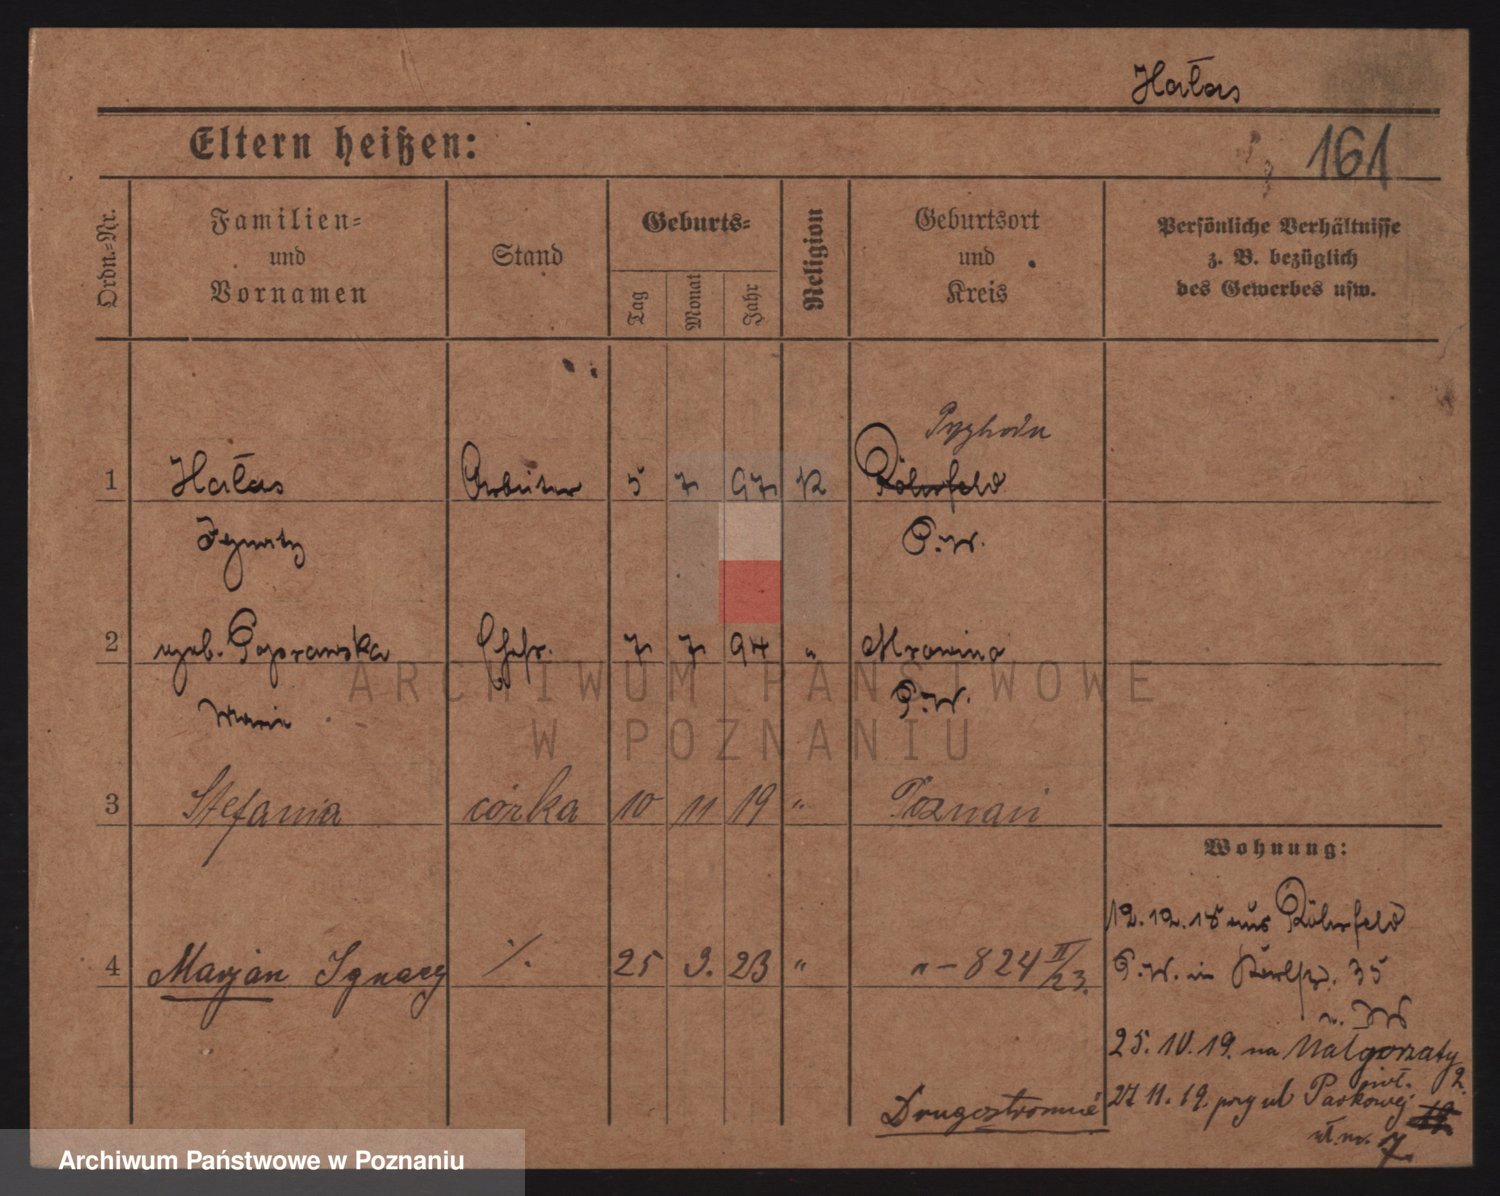 Hałas
161
Eltern heißen:
Ordn.-Nr.
Familien-
und
Vornamen
Stand
Geburts-
Tag
Monat
Jahr
Religion
Geburtsort
und
Kreis
Persönliche Verhältnisse
z. B. bezüglich
des Gewerbes usw.
1 Hałas Arbeiter 5 7 97 K Röhrfeld
Ignatz P.W.
2 Ehefr. 7 7 94 " Mrowino
Marie P.W.
3 Stefania córka 10 11 19 " Poznań
Wohnung:
4 Marjan Ignacy ./. 25 3. 23 " " – 824 II/23.
12.12.18 aus Röhrfeld
P.W. in 35
25.10.19. na Małgorzaty
2.
27 11. 19. przy ul Parkowej 19.
Drugostronnie
7.
ARCHIWUM PAŃSTWOWE
W POZNANIU
Archiwum Państwowe w Poznaniu